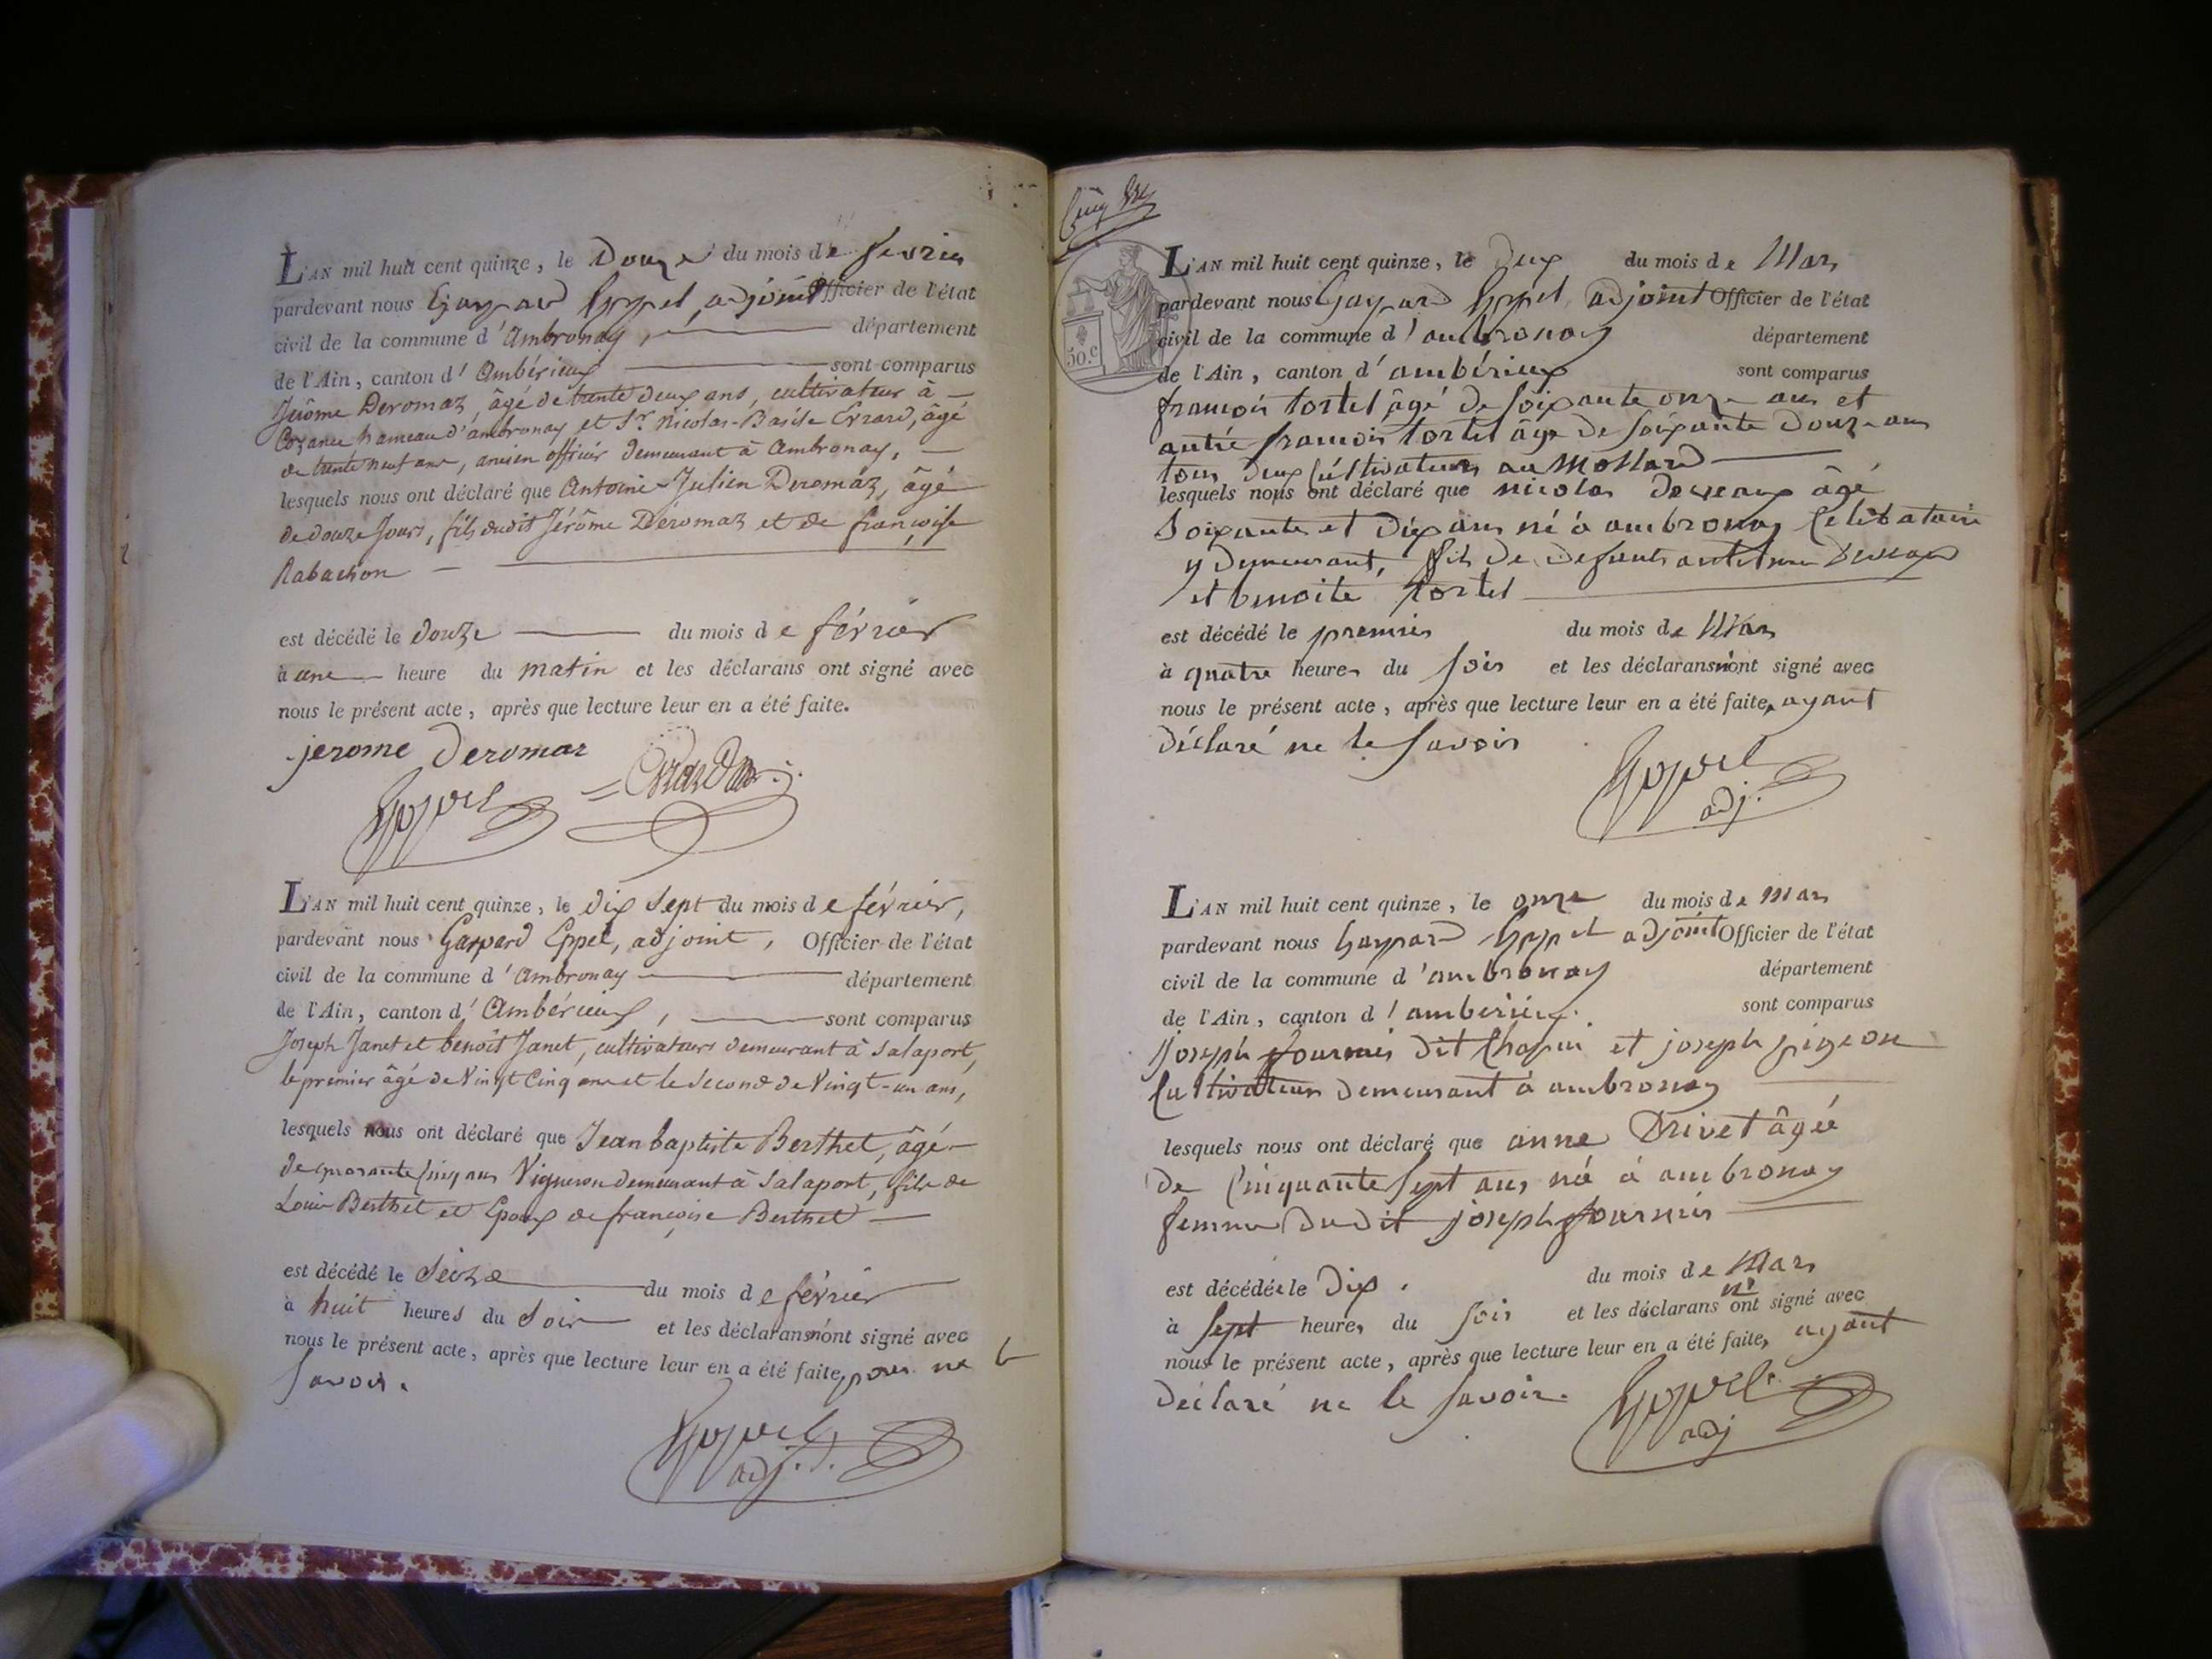 L'AN mil huit cent quinze, le Douze du mois de fevrier
pardevant nous Gaspard Eppel, adjoint Officier de l'état
civil de la commune d'Ambronay, département
de l'Ain, canton d'Ambérieux sont comparus
Jérôme Deromaz, âgé de trente deux ans, cultivateur à
Cozance hameau d'ambronay et Sr. Nicolas-Basile Evrard, âgé
de trente neuf ans, ancien officier demeurant à Ambronay,
lesquels nous ont déclaré que Antoine-Julien Deromaz, âgé
de douze Jours, fils dudit Jérôme Deromaz et de françoise
Rabachon
est décédé le douze du mois de février
à une heure du matin et les déclarans ont signé avec
nous le présent acte, après que lecture leur en a été faite.
jerome deromaz
Eppel
L'AN mil huit cent quinze, le dix sept du mois de février,
pardevant nous Gaspard Eppel, adjoint, Officier de l'état
civil de la commune d'Ambronay département
de l'Ain, canton d'Ambérieux, sont comparus
Joseph Janet et benoît Janet, cultivateurs demeurant à Salaport,
le premier âgé de Vingt Cinq ans et le Second de Vingt-un ans,
lesquels nous ont déclaré que Jean baptiste Berthet, âgé
de quarante Cinq ans Vigneron demeurant à Salaport, fils de
Louis Berthet et Epoux de françoise Berthet
est décédé le Seize du mois de février
à huit heures du Soir et les déclarans n'ont signé avec
nous le présent acte, après que lecture leur en a été faite, pour ne le
Savoir.
Eppel
adj.
Cinq
50.c
L'AN mil huit cent quinze, le Deux du mois de Mars
pardevant nous Gaspard Eppel, adjoint Officier de l'état
civil de la commune d'ambronay département
de l'Ain, canton d'ambérieux sont comparus
francois tortel âgé de soixante onze ans et
autre francois tortel âgé de soixante Douze ans
tous deux Cultivateurs au Mollard
lesquels nous ont déclaré que nicolas âgé
Soixante et Dix ans né à ambronay Celibataire
y Demeurant, fils de Defunts
et benoite tortel
est décédé le premier du mois de Mars
à quatre heures du Soir et les déclarans n'ont signé avec
nous le présent acte, après que lecture leur en a été faite, ayant
Déclaré ne le Savoir
Eppel
adj.
L'AN mil huit cent quinze, le onze du mois de mars
pardevant nous Gaspard Eppel adjoint Officier de l'état
civil de la commune d'ambronay département
de l'Ain, canton d'amberieux. sont comparus
Joseph fournier dit Chapui et joseph pigeon
Cultivateurs Demeurant à ambronay
lesquels nous ont déclaré que anne Drivet âgée
De Cinquante Sept ans, né à ambronay
femme Dudit joseph fournier
est décédée le Dix. du mois de Mars
à Sept heures du Soir et les déclarans n'ont signé avec
nous le présent acte, après que lecture leur en a été faite, ayant
Déclaré ne le Savoir.
Eppel
adj